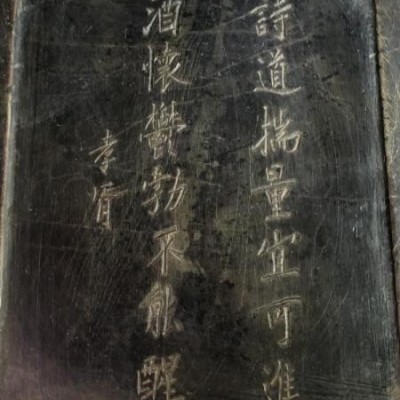 詩道揣量宜可進
酒懷鬱勃不能醒
李胥